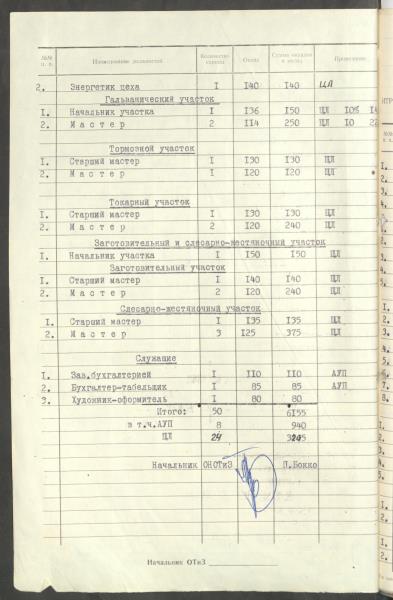 №№ п. п. Наименование должностей Количество единиц Оклад Сумма окладов в месяц Примечание
2. Энергетик цеха I I40 I40 ЦЛ
Гальванический участок
I. Начальник участка I I36 I50 ЦЛ 10% I4
2. М а с т е р 2 II4 250 ЦЛ I0 22
Тормозной участок
I. Старший мастер I I30 I30 ЦЛ
2. М а с т е р I I20 I20 ЦЛ
Токарный участок
I. Старший мастер I I30 I30 ЦЛ
2. М а с т е р 2 I20 240 ЦЛ
Заготовительный и слесарно-жестяночный участок
I. Начальник участка I I50 I50 ЦЛ
Заготовительный участок
I. Старший мастер I I40 I40 ЦЛ
2. М а с т е р 2 I20 240 ЦЛ
Слесарно-жестяночный участок
I. Старший мастер I I35 I35 ЦЛ
2. М а с т е р 3 I25 375 ЦЛ
Служащие
I. Зав.бухгалтерией I II0 II0 АУП
2. Бухгалтер-табельщик I 85 85 АУП
3. Художник-оформитель I 80 80
Итого: 50 6I55
в т.ч.АУП 8 940
ЦЛ 24
Начальник ОНОТиЗ П.Бокко
Начальник ОТиЗ